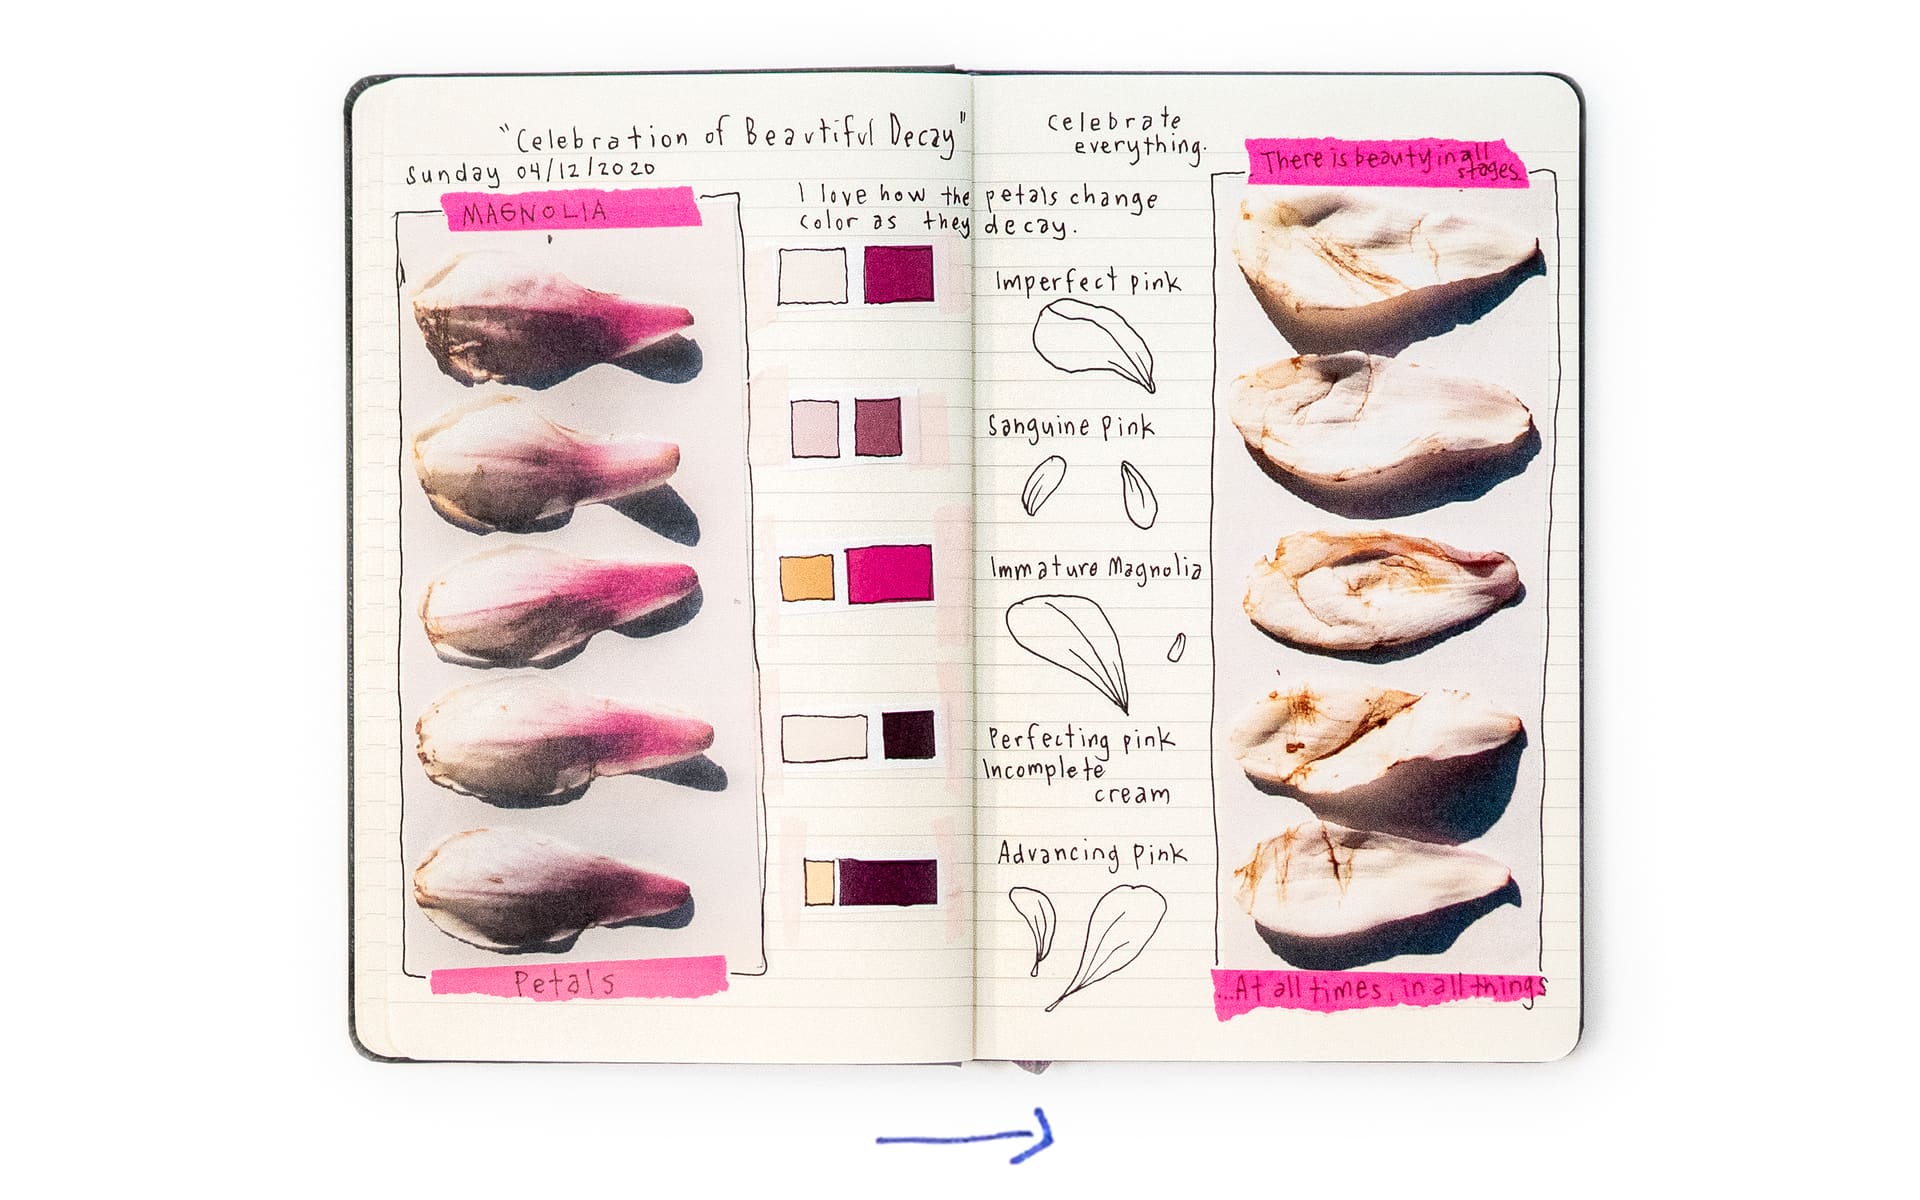 "Celebration of Beautiful Decay"
Sunday 04/12/2020
MAGNOLIA
I love how the petals change
color as they decay.
Petals
celebrate
everything.
Imperfect pink
Sanguine Pink
Immature Magnolia
Perfecting pink
Incomplete
cream
Advancing Pink
There is beauty in all
stages
...At all times, in all things